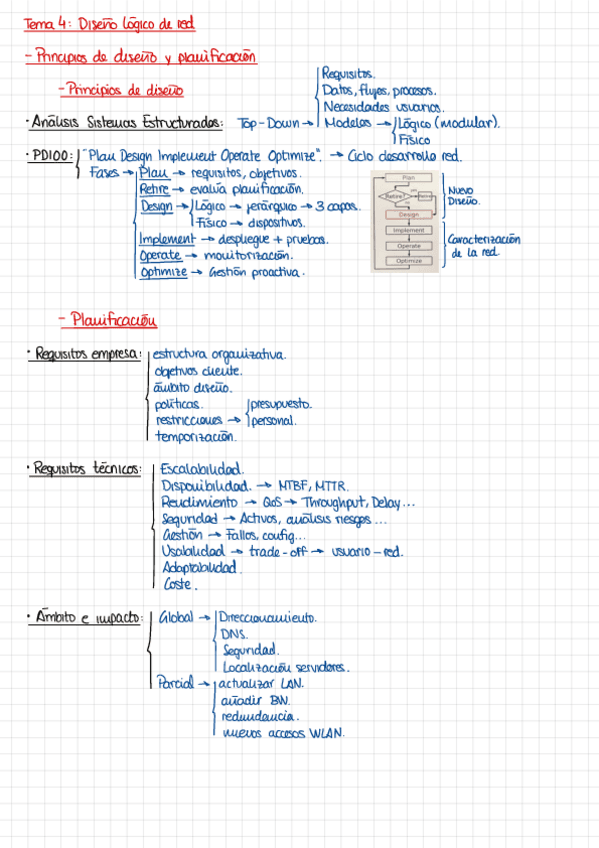 Tema 4: Diseño lógico de red
- Principios de diseño y planificación
- Principios de diseño
· Análisis Sistemas Estructurados: Top-Down →
Requisitos.
Datos, flujos, procesos.
Necesidades usuarios.
Modelos → Lógico (modular).
Físico
· PDIOO: "Plan Design Implement Operate Optimize". → Ciclo desarrollo red.
Fases → Plan → requisitos, objetivos.
Retire → evalúa planificación.
Design → Lógico → jerárquico → 3 capas.
Físico → dispositivos.
Implement → despliegue + pruebas.
Operate → monitorización.
Optimize → Gestión proactiva.
Plan
Retire?
Retire
Design
Implement
Operate
Optimize
Nuevo
Diseño.
Caracterización
de la red.
- Planificación
· Requisitos empresa: estructura organizativa.
objetivos cliente.
ámbito diseño.
políticas.
restricciones → presupuesto.
personal.
temporización.
· Requisitos técnicos: Escalabilidad.
Disponibilidad. → MTBF, MTTR.
Rendimiento → QoS → Throughput, Delay...
Seguridad → Activos, análisis riesgos...
Gestión → Fallos, config...
Usabilidad → trade-off → usuario-red.
Adaptabilidad.
Coste.
· Ámbito e impacto: Global → Direccionamiento.
DNS.
Seguridad.
Localización servidores.
Parcial → actualizar LAN.
añadir BW.
redundancia.
nuevos accesos WLAN.